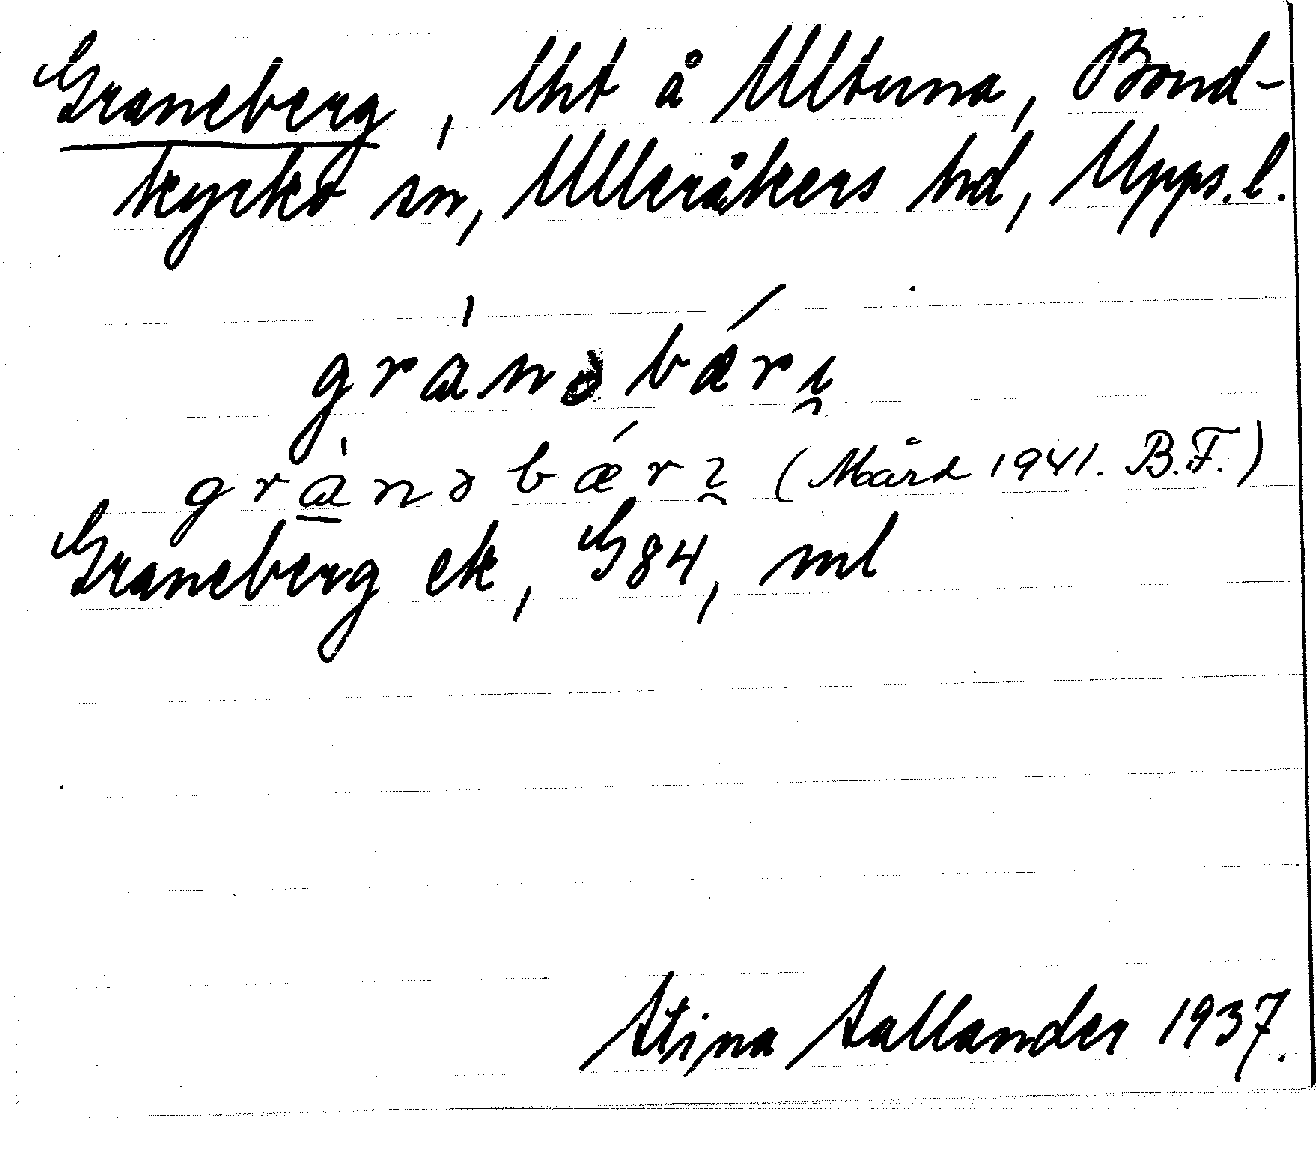 Graneberg, lht å Ultuna, Bond-
kyrko sn, Ulleråkers hd, Upps. l.
grànəbǽrı̯
grànəbǽrı̯ (Mård 1941. B.F.)
Graneberg ek, G84, ml
Stina Sallander 1937.